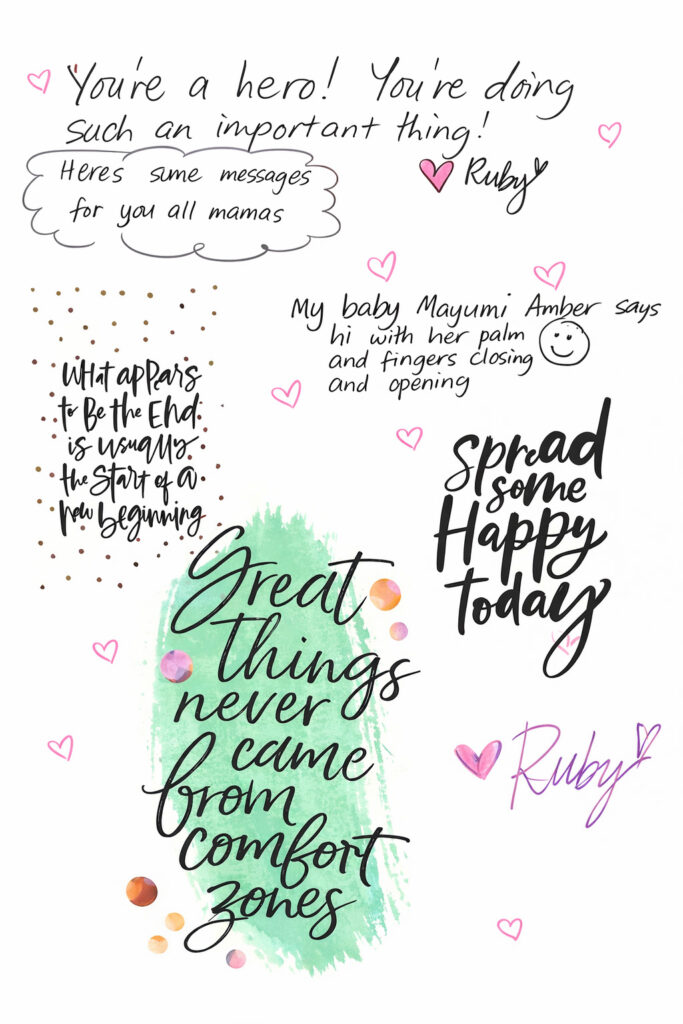 You're a hero! You're doing
such an important thing!
Heres sume messages
for you all mamas
Ruby
My baby Mayumi Amber says
hi with her palm
and fingers closing
and opening
WHat appears
to Be the End
is usually
the Start of a
new beginning
Spread
some
Happy
today
Great
things
never
came
from
comfort
zones
Ruby